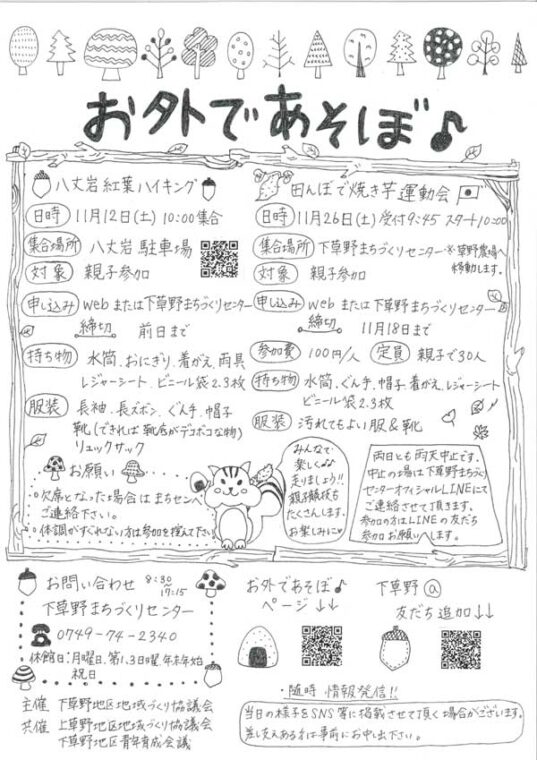 お外であそぼ♪
八丈岩 紅葉ハイキング
日時 11月12日(土) 10:00集合
集合場所 八丈岩 駐車場
対象 親子参加
申し込み webまたは下草野まちづくりセンター
締切 前日まで
持ち物 水筒、おにぎり、着がえ、雨具
レジャーシート、ビニール袋2.3枚
服装 長袖、長ズボン、ぐん手、帽子
靴(できれば靴底がデコボコな物)
リュックサック
お願い
・欠席となった場合はまちセンへ
ご連絡下さい。
・体調がすぐれない方は参加を控えて下さい。
田んぼで焼き芋運動会
日時 11月26日(土) 受付9:45 スタート10:00
集合場所 下草野まちづくりセンター ※草野農場へ
移動します。
対象 親子参加
申し込み webまたは下草野まちづくりセンター
締切 11月18日まで
参加費 100円/人 定員 親子で30人
持ち物 水筒、ぐん手、帽子、着がえ、レジャーシート
ビニール袋2.3枚
服装 汚れてもよい服&靴
みんなで
楽しく
走りましょう!!
親子競技も
たくさんします。
お楽しみに♡
両日とも雨天中止です。
中止の場合は下草野まちづくり
センターオフィシャルLINEにて
ご連絡させて頂きます。
参加の方はLINEの友だち
参加お願いへします。
お問い合わせ 8:30~17:15
下草野まちづくりセンター
☎ 0749-74-2340
休館日:月曜日、第1.3日曜 年末年始
祝日
お外であそぼ♪
ページ↓↓
下草野@
友だち追加↓↓
・随時 情報発信!!
主催 下草野地区地域づくり協議会
共催 上草野地区地域づくり協議会
下草野地区青年育成会議
当日の様子をSNS等に掲載させて頂く場合がございます。
差し支えある方は事前にお申出下さい。